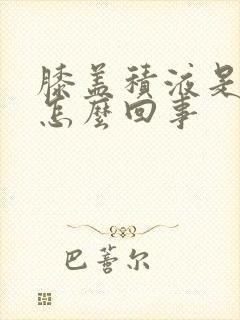 膝盖積液是
怎麼回事
巴蕾尔